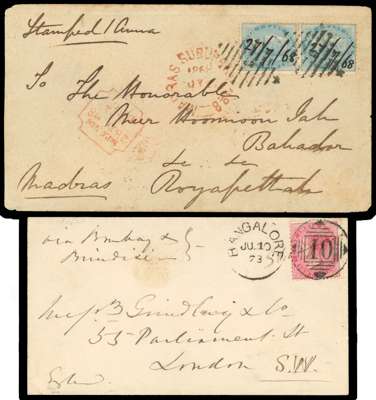 Stamped 1 Anna
27/7/68
27/7/68
MADRAS SUBURB
To The Honorable
Meer Hoomoon Jah
Bahador
&c &c
Madras Royapettah
via Bombay &
Brindisi
BANGALORE
JU.10
73
10
Messrs Grindlay & Co
55 Parliament St
London
S.W.